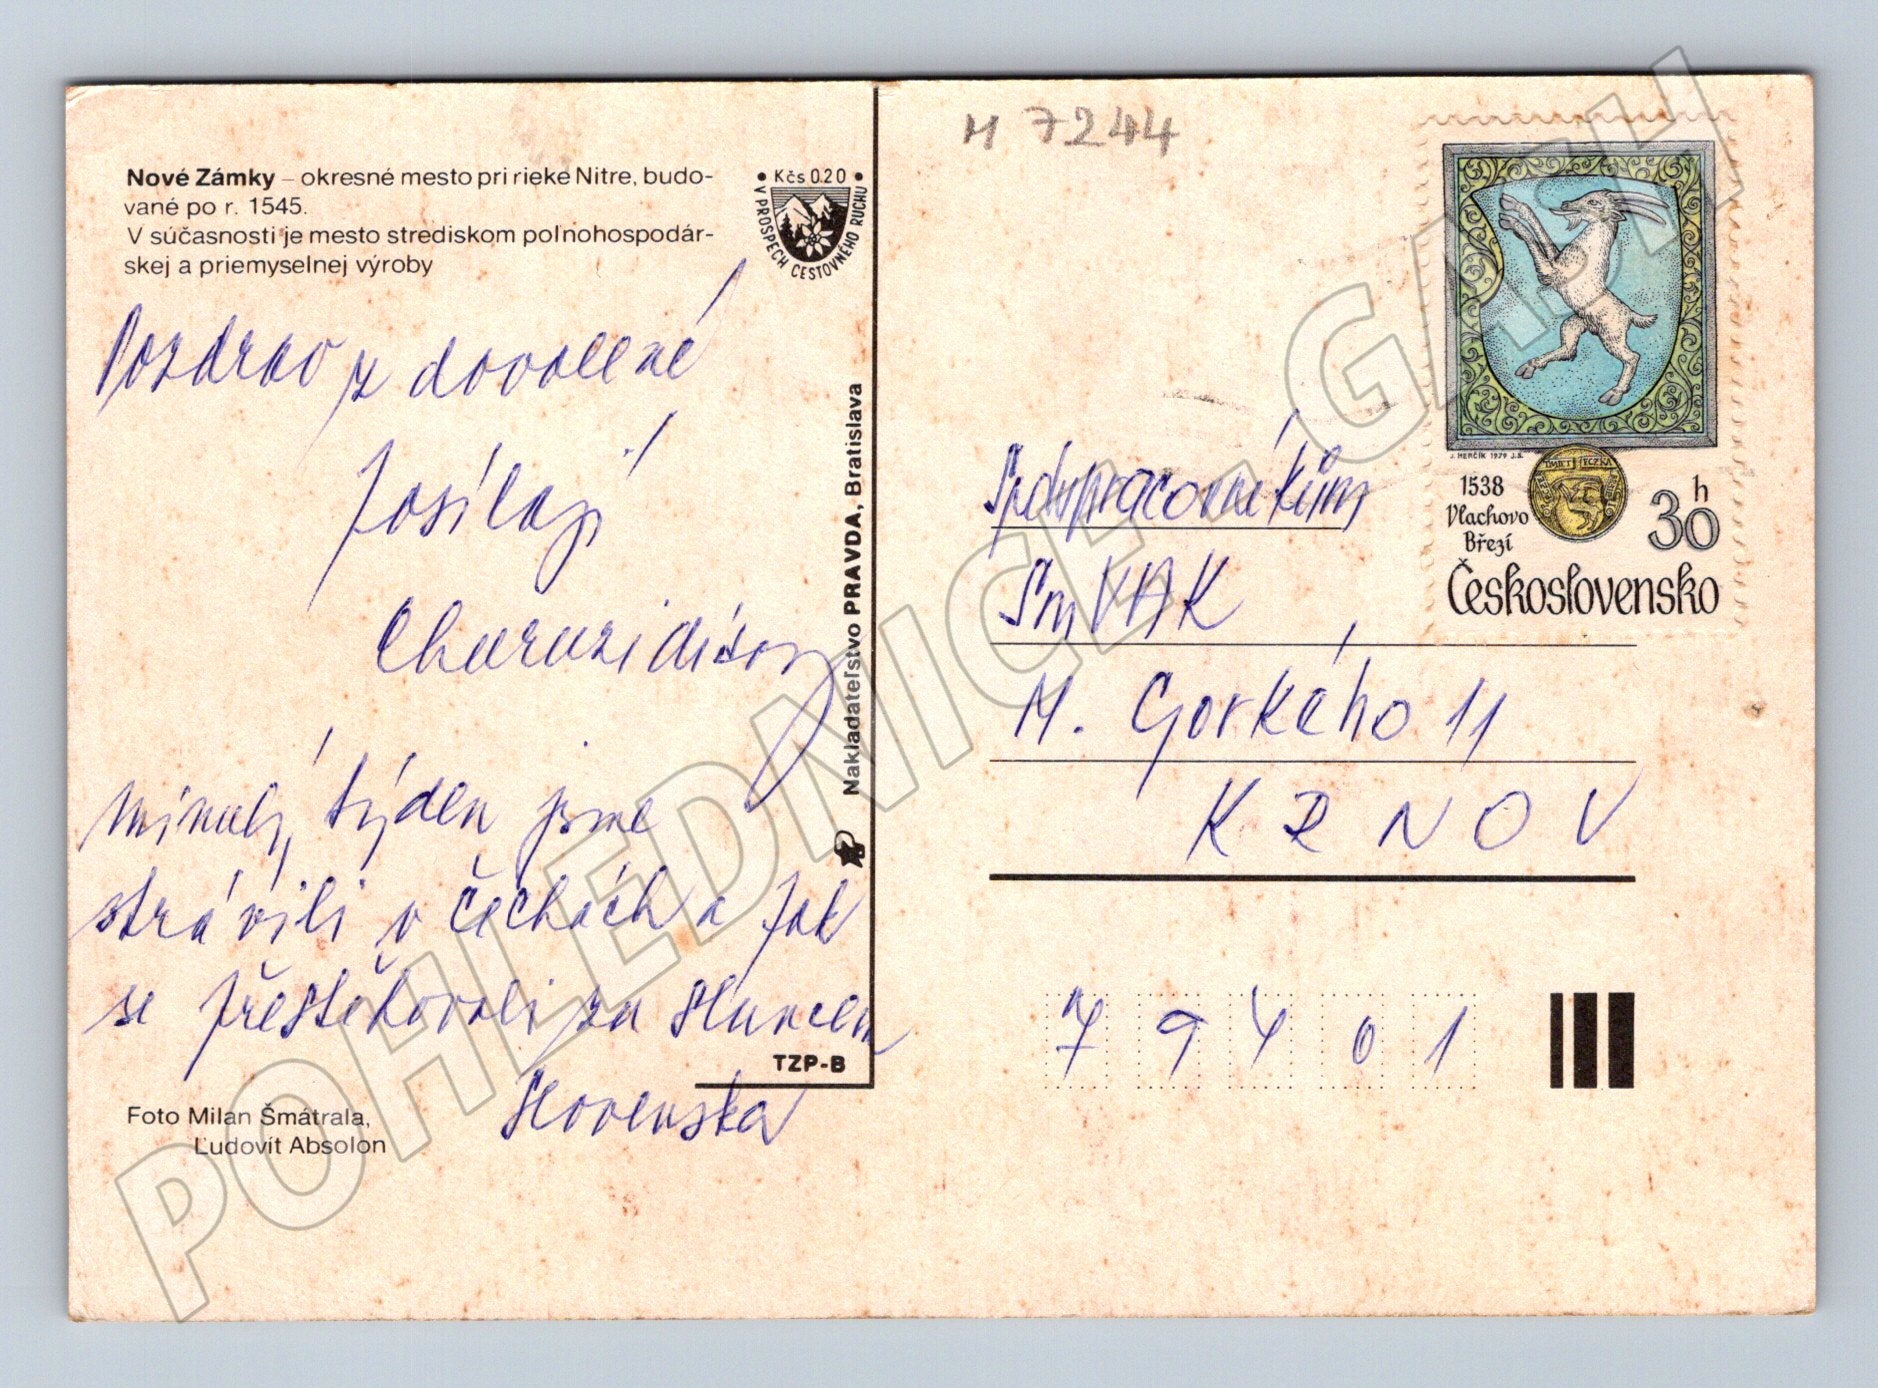 Nové Zámky – okresné mesto pri rieke Nitre, budo-
vané po r. 1545.
V súčasnosti je mesto strediskom poľnohospodár-
skej a priemyselnej výroby
• Kčs 0.20 •
V PROSPECH CESTOVNÉHO RUCHU
Pozdrav z dovolené
posílají
minulý týden jsme
strávili v čechách a pak
se přestěhovali za sluncem
Slovenska
Foto Milan Šmátrala,
Ľudovít Absolon
Nakladateľstvo PRAVDA, Bratislava
TZP-B
M 7244
J. HERČÍK 1979 J.S.
1538
Vlachovo
Březí
30 h
Československo
Spolupracovníkům
SmVAK
M. Gorkého 11
KRNOV
794 01
POHLEDNICE - GASH